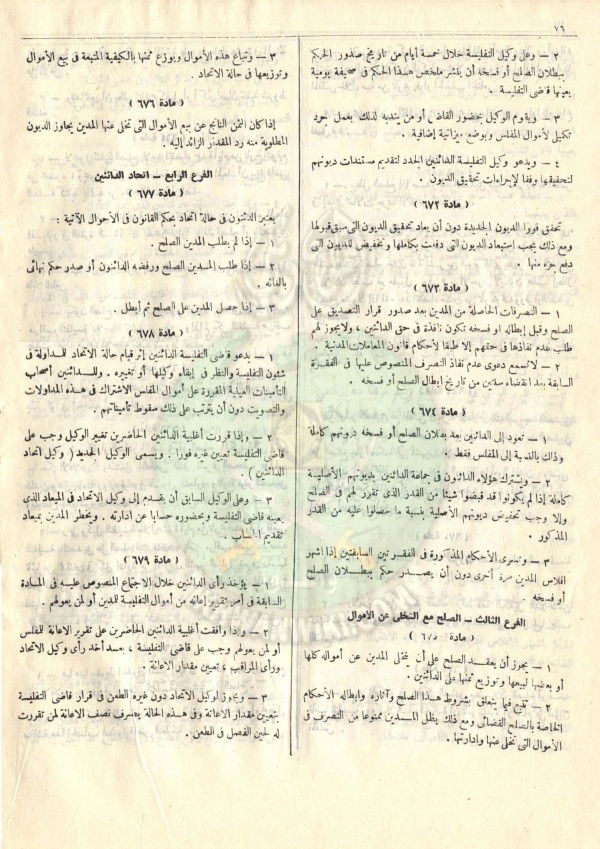 ٧٦
٢ – وعلى وكيل التفليسة خلال خمسة أيام من تاريخ صدور الحكم
ببطلان الصلح أو فسخه أن ينشر ملخص هذا الحكم في صحيفة يومية
يعينها قاضى التفليسة .
٣ – ويقوم الوكيل بحضور القاضى أو من ينتدبه لذلك بعمل جرد
تكميلى لأموال المفلس وبوضع ميزانية إضافية .
٤ – ويدعو وكيل التفليسة الدائنين الجدد لتقديم مستندات ديونهم
لتحقيقها وفقا لإجراءات تحقيق الديون .
( مادة ٦٧٢ )
تحقق فورا الديون الجديدة دون أن يعاد تحقيق الديون التى سبق قبولها
ومع ذلك يجب استبعاد الديون التى دفعت بكاملها وتخفيض الديون التى
دفع جزء منها .
( مادة ٦٧٣ )
١ – التصرفات الحاصلة من المدين بعد صدور قرار التصديق على
الصلح وقبل إبطاله او فسخه تكون نافذة فى حق الدائنين ، ولايجوز لهم
طلب عدم نفاذها فى حقهم إلا طبقا لأحكام قانون المعاملات المدنية
٢ – لاتسمع دعوى عدم نفاذ التصرف المنصوص عليها فى الفقرة
السابقة بعد انقضاء سنتين من تاريخ إبطال الصلح أو فسخه .
( مادة ٦٧٤ )
١ – تعود إلى الدائنين بعد بطلان الصلح أو فسخه ديونهم كاملة
وذلك بالنسبة إلى المفلس فقط .
٢ – ويشترك هؤلاء الدائنون فى جماعة الدائنين بديونهم الأصلية
كاملة إذا لم يكونوا قد قبضوا شيئا من القدر الذى تقرر لهم فى الصلح
وإلا وجب تخفيض ديونهم الأصلية بنسبة ما حصلوا عليه من القدر
المذكور .
٣ – وتسرى الأحكام المذكورة فى الفقرتين السابقتين إذا اشهر
افلاس المدين مرة أخرى دون أن يصدر حكم ببطلان الصلح
أو فسخه .
الفرع الثالث – الصلح مع التخلى عن الأموال
( مادة ٦٧٥ )
١ – يجوز أن يعقد الصلح على أن يتخلى المدين عن أمواله كلها
أو بعضها لبيعها وتوزيع ثمنها على الدائنين .
٢ – تتبع فيما يتعلق بشروط هذا الصلح وآثاره وإبطاله الأحكام
الخاصة بالصلح القضائى ومع ذلك يظل المدين ممنوعا من التصرف فى
الأموال التى تخلى عنها وإدارتها .
٣ – وتباع هذه الأموال ويوزع ثمنها بالكيفية المتبعة فى بيع الأموال
وتوزيعها فى حالة الاتحاد .
( مادة ٦٧٦ )
إذا كان الثمن الناتج عن بيع الأموال التى تخلى عنها المدين يجاوز الديون
المطلوبة منه رد المقدار الزائد إليه .
الفرع الرابع – اتحاد الدائنين
( مادة ٦٧٧ )
يعتبر الدائنون فى حالة اتحاد بحكم القانون فى الأحوال الآتية :
١ – إذا لم يطلب المدين الصلح .
٢ – إذا طلب المدين الصلح ورفضه الدائنون أو صدر حكم نهائى
بالغائه .
٣ – إذا حصل المدين على الصلح ثم أبطل .
( مادة ٦٧٨ )
١ – يدعو قاضى التفليسة الدائنين إثر قيام حالة الاتحاد للمداولة فى
شئون التفليسة والنظر فى إبقاء وكيلها أو تغييره . وللدائنين أصحاب
التأمينات العينية المقررة على أموال المفلس الاشتراك فى هذه المداولات
والتصويت دون أن يترتب على ذلك سقوط تأميناتهم .
٢ – وإذا قررت أغلبية الدائنين الحاضرين تغيير الوكيل وجب على
قاضى التفليسة تعيين غيره فورا . ويسمى الوكيل الجديد ( وكيل اتحاد
الدائنين ) .
٣ – وعلى الوكيل السابق أن يقدم إلى وكيل الاتحاد فى الميعاد الذى
يعينه قاضى التفليسة وبحضوره حسابا عن ادارته . ويخطر المدين بميعاد
تقديم الحساب .
( مادة ٦٧٩ )
١ – يؤخذ رأى الدائنين خلال الاجتماع المنصوص عليه فى المادة
السابقة فى أمر تقرير إعانة من أموال التفليسة للمدين أو لمن يعولهم .
٢ – وإذا وافقت أغلبية الدائنين الحاضرين على تقرير الاعانة للمفلس
أو لمن يعولهم وجب على قاضى التفليسة ، بعد أخذ رأى وكيل الاتحاد
ورأى المراقب ، تعيين مقدار الاعانة .
٣ – ويجوز لوكيل الاتحاد دون غيره الطعن فى قرار قاضى التفليسة
بتعيين مقدار الاعانة وفى هذه الحالة يصرف نصف الاعانة لمن تقررت
له لحين الفصل فى الطعن .